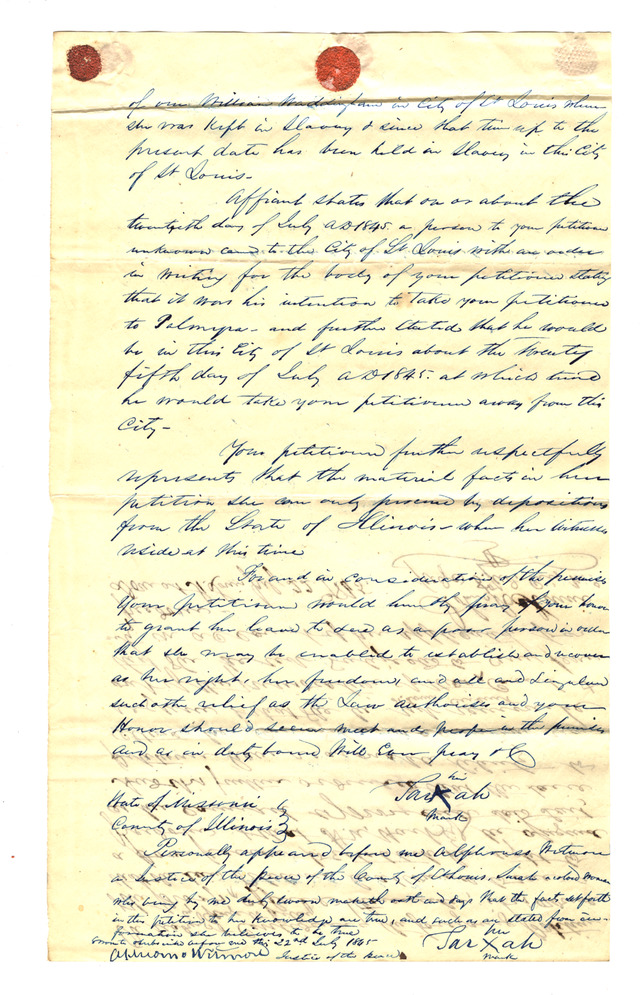 of one William Waddingham in City of St Louis where
she was kept in Slavery & since that time up to the
present date has been held in Slavery in this City
of St Louis-
Affiant states that on or about the
twentieth day of July AD 1845. a person to your petitioner
unknown came to the City of St Louis with an order
in writing for the body of your petitioner stating
that it was his intention to take your petitioner
to Palmyra- and further stated that he would
be in this City of St Louis about the Twenty
fifth day of July AD 1845. at which time
he would take your petitioner away from this
City-
Your petitioner further respectfully
represents that the material facts in her
petition she can only procure by depositions
from the State of Illinois- where her witnesses
reside at this time
For and in consideration of the premises
Your petitioner would humbly pray your honor
to grant her leave to sue as a poor person in order
that she may be enabled to establish and recover
as her right, her freedom, and all and Singular
such other relief as the Law authorises and your
Honor should seem meet and proper in the premises
and as in duty bound Will Ever pray &C
her
Sar X ah
mark
State of Missouri
County of Illinois
Personally appeared before me Alphonso Wetmore
a Justice of the peace of the County of St Louis, Sarah a colored Woman
who being by me duly sworn maketh oath and says that the facts set forth
in this petition to her knowledge are true, and such as are stated from in-
formation she believes to be true
Sworn & subscribed before me this 22nd July 1845
her
Sar X ah
mark
Alphonso Wetmore Justice of the peace